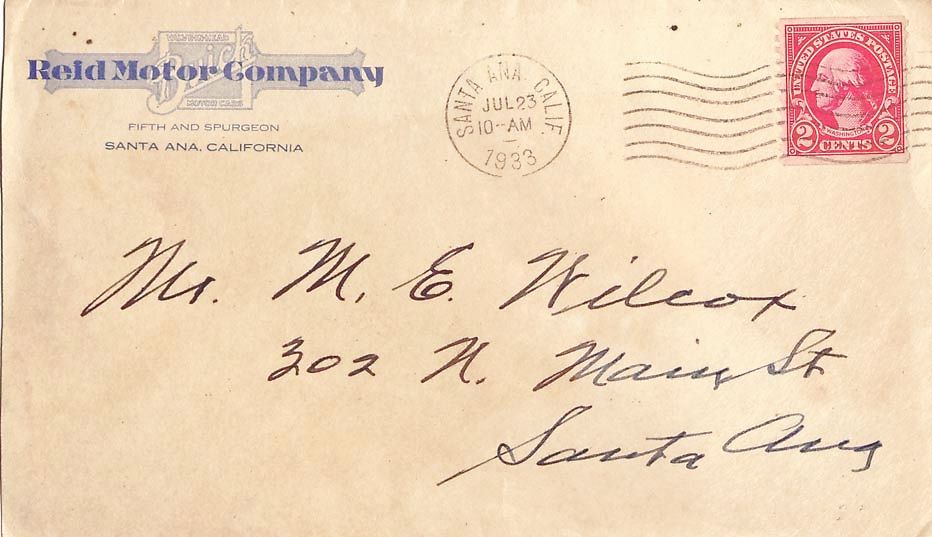 VALVE-IN-HEAD
Buick
MOTOR CARS
Reid Motor Company
FIFTH AND SPURGEON
SANTA ANA, CALIFORNIA
SANTA ANA. CALIF.
JUL 23
10-AM
1933
UNITED STATES POSTAGE
WASHINGTON
2 CENTS 2
Mr. M. E. Wilcox
302 N. Main St
Santa Ana